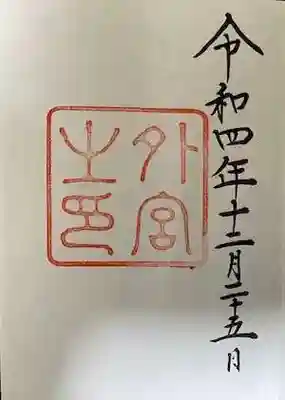 令和四年十二月二十五日
外宮之印